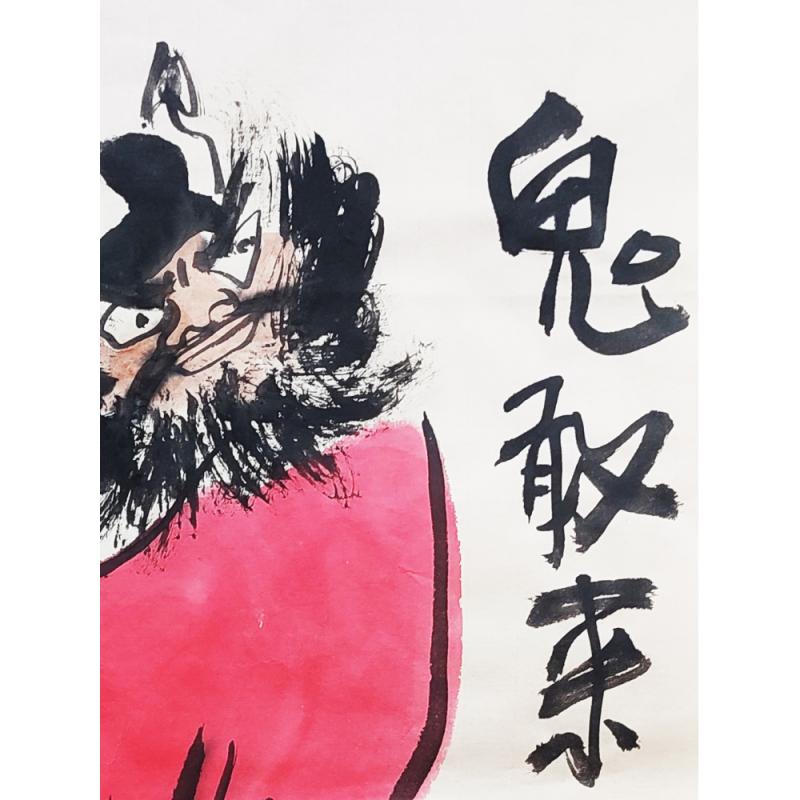 鬼敢来